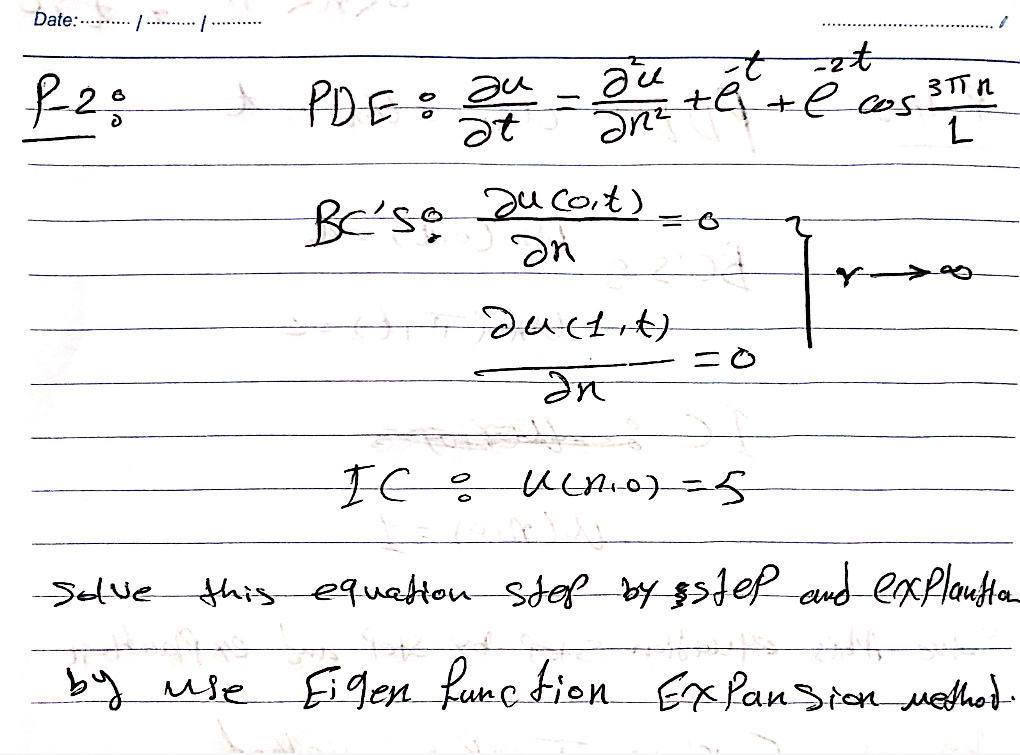 Date:........... / ........... / ...........
P-2: PDE: ∂u/∂t = ∂²u/∂x² + e^-t + e^-2t cos 3πx/L
BC'S: ∂u(0,t)/∂x = 0
r → ∞
∂u(1,t)/∂x = 0
IC: u(x,0) = 5
solve this equation step by step and explantion
by use Eigen function Expansion method.